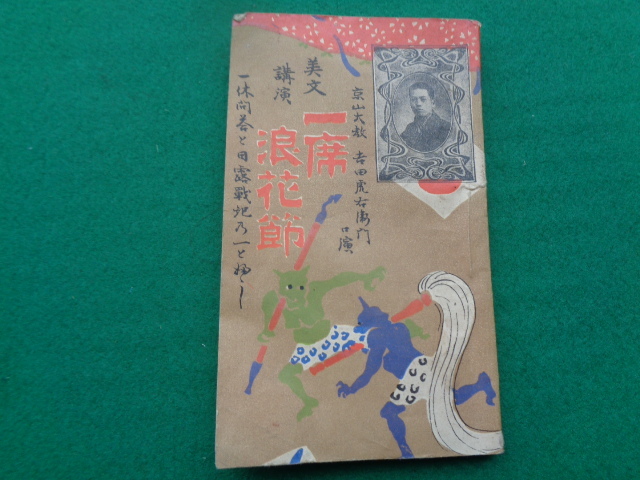 京山大教 吉田虎右衛門
口演
美文
講演
一席
浪花節
一休問答と日露戦記乃一とふし